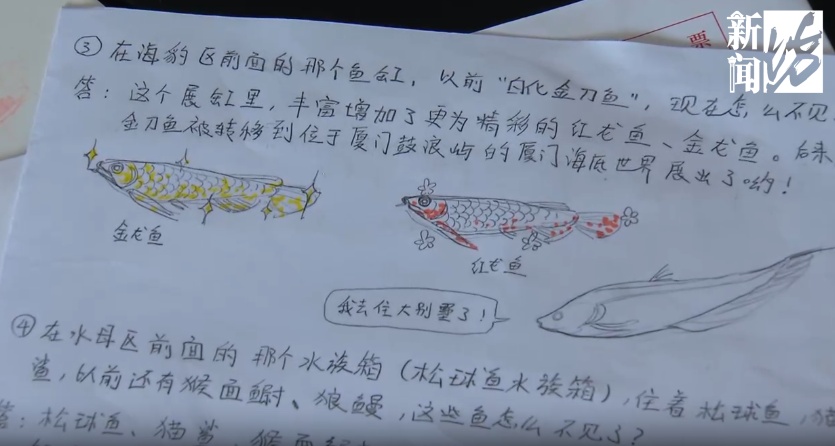 新闻
票
③在海豹区前面的那个鱼缸，以前“白化金刀鱼”，现在怎么不见
答：这个展缸里，丰富增加了更为精彩的红龙鱼、金龙鱼。后来
金刀鱼被转移到位于厦门鼓浪屿的厦门海底世界展出了哟！
金龙鱼
红龙鱼
我去住大别墅了！
④在水母区前面的那个水族箱（松球鱼水族箱），住着松球鱼，猫
鲨，以前还有猴面鳚、狼鳗，这些鱼怎么不见了？
答：松球鱼、猫鲨、猴面